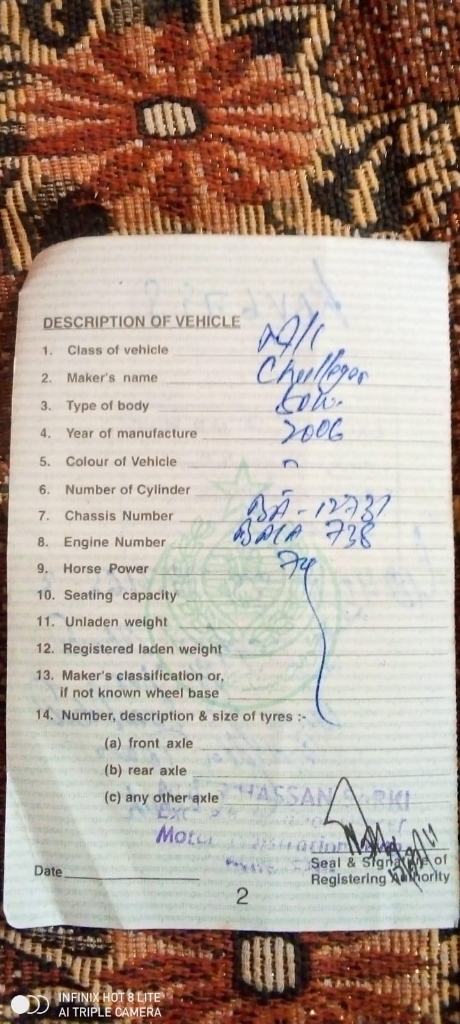 DESCRIPTION OF VEHICLE
1. Class of vehicle M/C
2. Maker's name
3. Type of body
4. Year of manufacture 2006
5. Colour of Vehicle
6. Number of Cylinder
7. Chassis Number BA-12731
8. Engine Number 738
9. Horse Power
10. Seating capacity
11. Unladen weight
12. Registered laden weight
13. Maker's classification or,
if not known wheel base
14. Number, description & size of tyres :-
(a) front axle
(b) rear axle
(c) any other axle
HASSAN
Seal & Signature of
Date
Registering Authority
2
INFINIX HOT 8 LITE
AI TRIPLE CAMERA